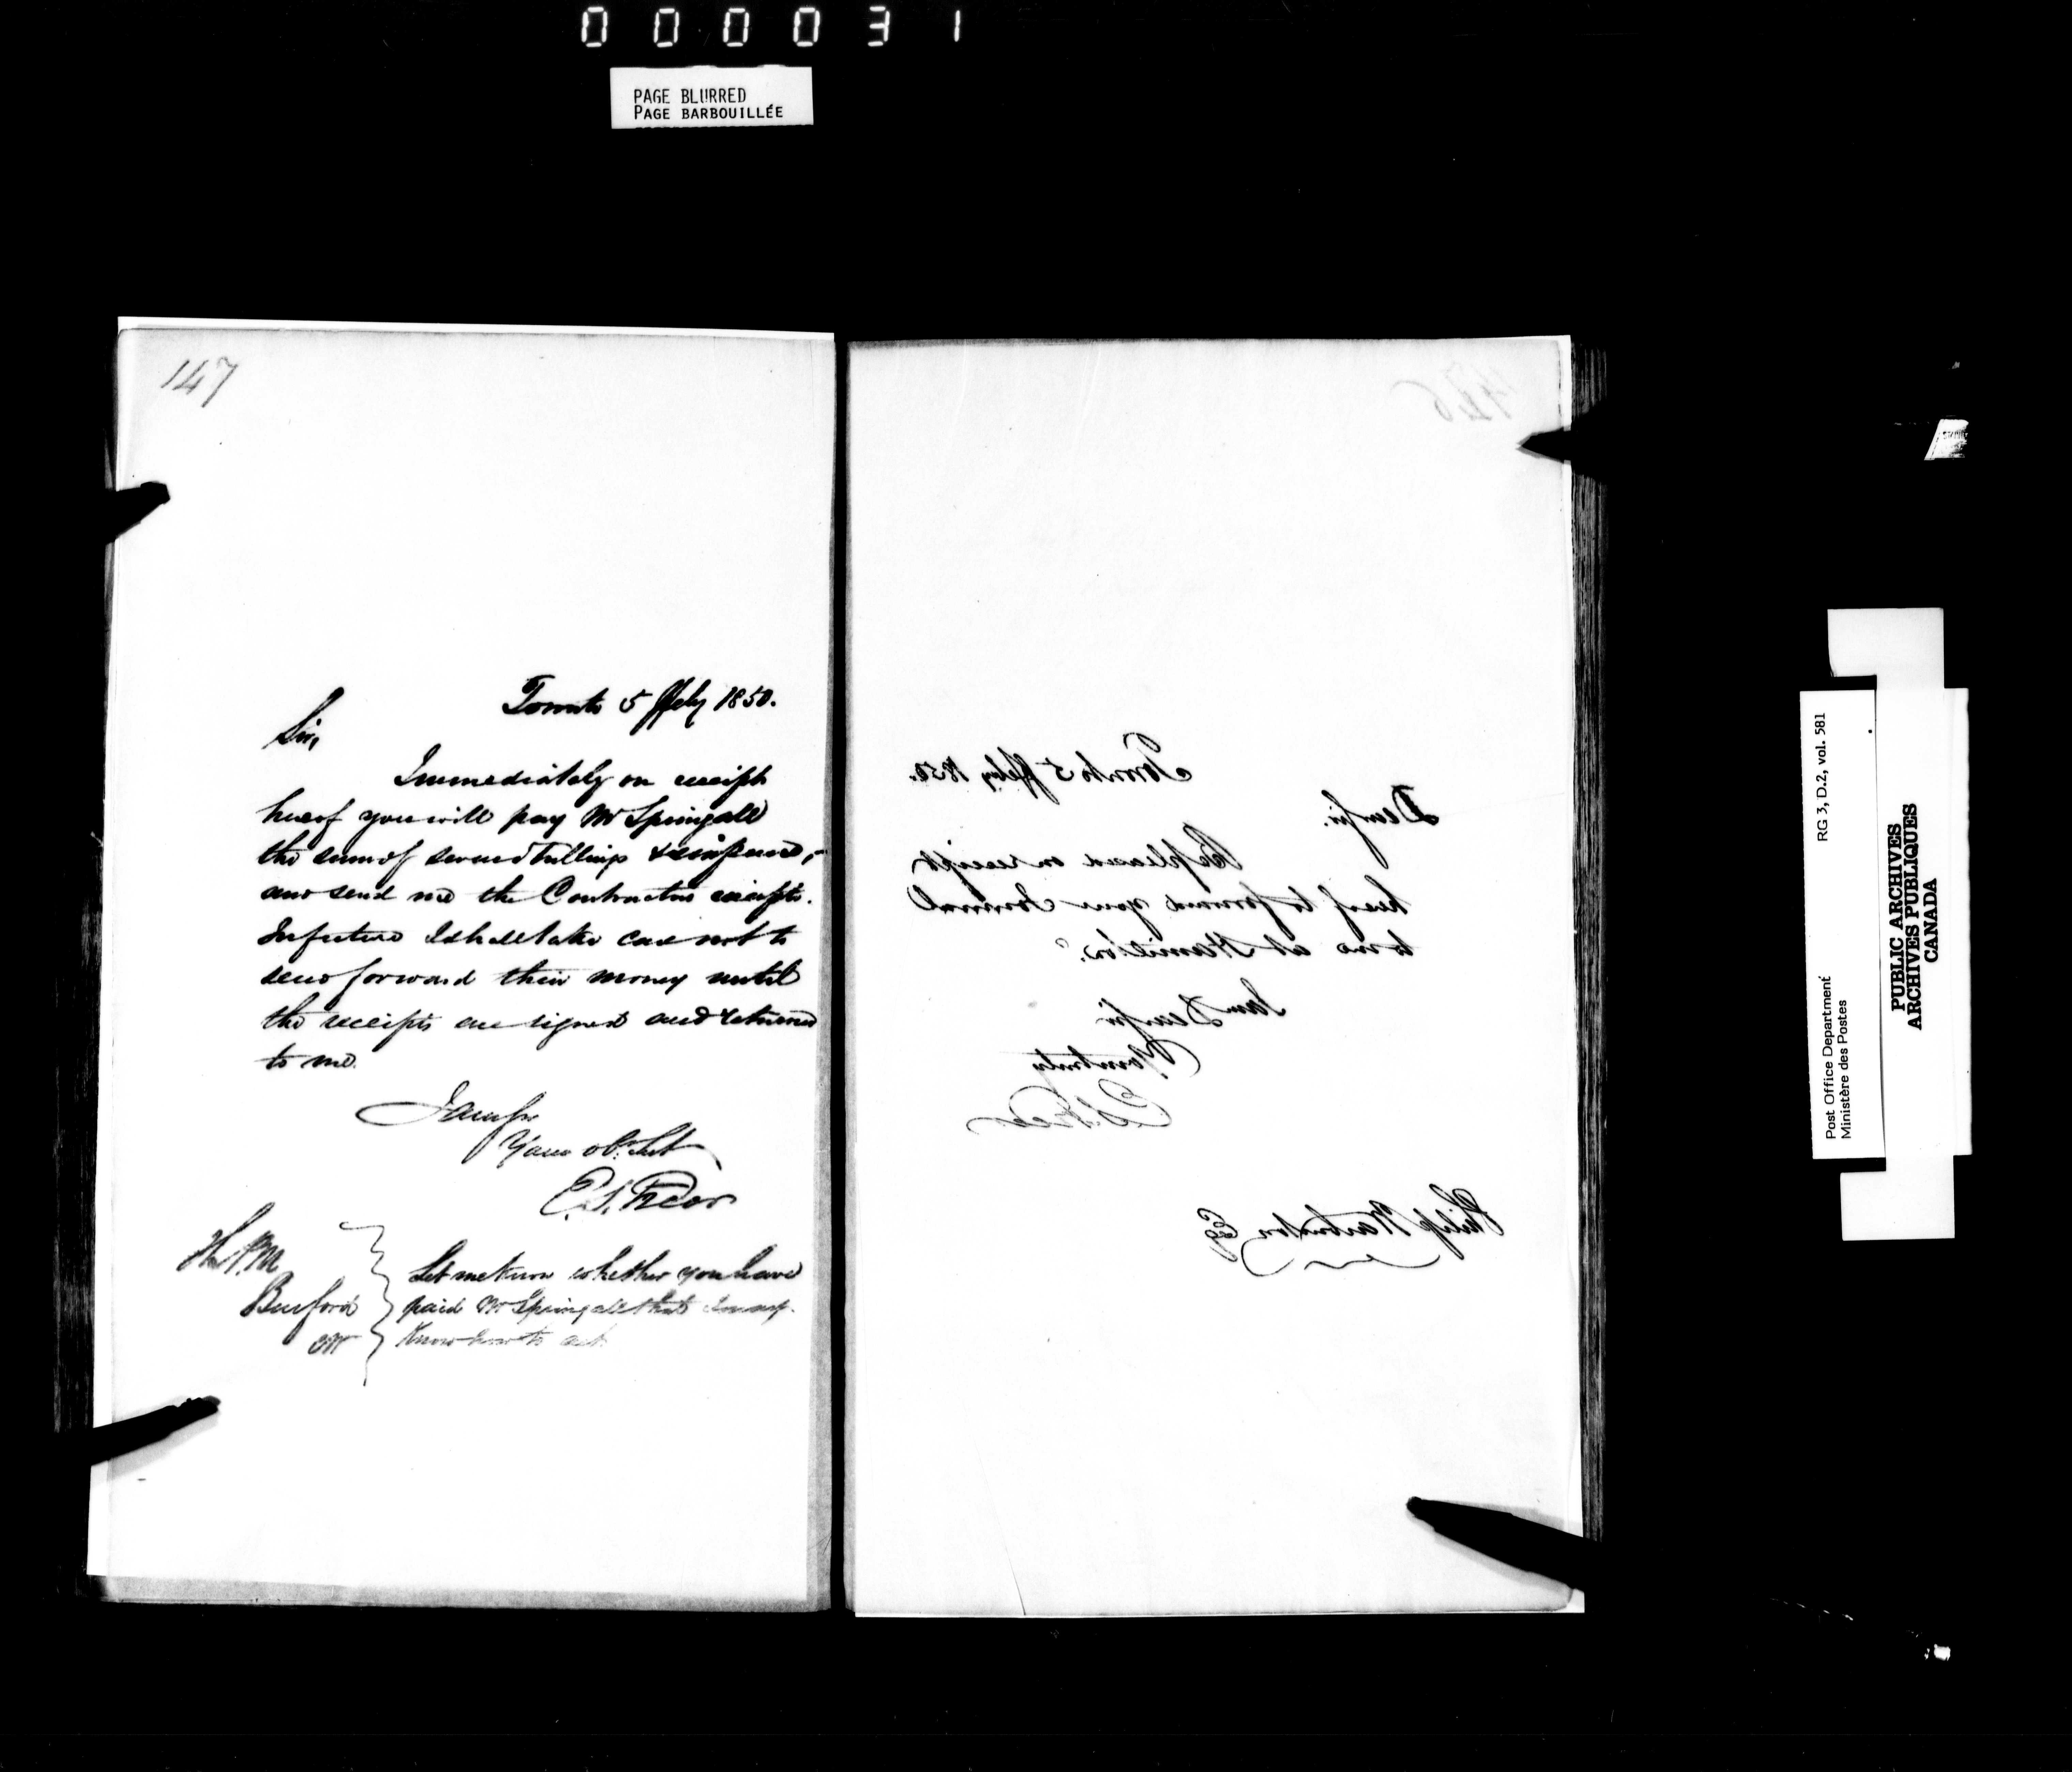 000031
PAGE BLURRED
PAGE BARBOUILLÉE
147
Toronto 5 ffeby 1850.
Sir,
Immediately on receipt
hereof you will pay Mr Springall
the sum of seven shillings & sixpence,
and send me the Contractors receipts.
In future I shall take care not to
send forward their money until
the receipts are signed and returned
to me.
I am Sir
Your obt Sert
E.S. Freer
The P.M.
Burford
CW
Let me know whether you have
paid Mr Springall that I may
Know how to act
146
Toronto 5 ffeby 1850.
Dear Sir.
Be pleased on receipt
hereof to forward your Journal
to me at Hamilton.
I am Dear Sir
Yours truly
E.S. Freer
Philip Warburton Esq
Post Office Department
Ministère des Postes
RG 3, D.2, vol. 581
PUBLIC ARCHIVES
ARCHIVES PUBLIQUES
CANADA